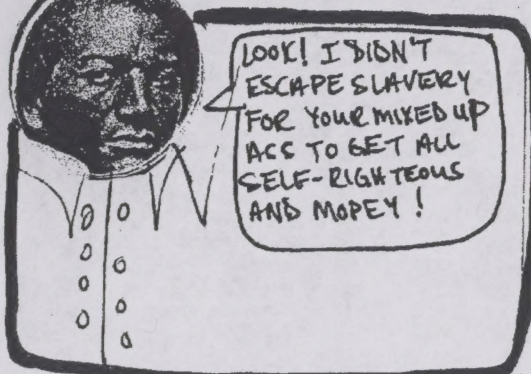 LOOK! I DIDN'T
ESCAPE SLAVERY
FOR YOUR MIXED UP
ASS TO GET ALL
SELF-RIGHTEOUS
AND MOPEY!